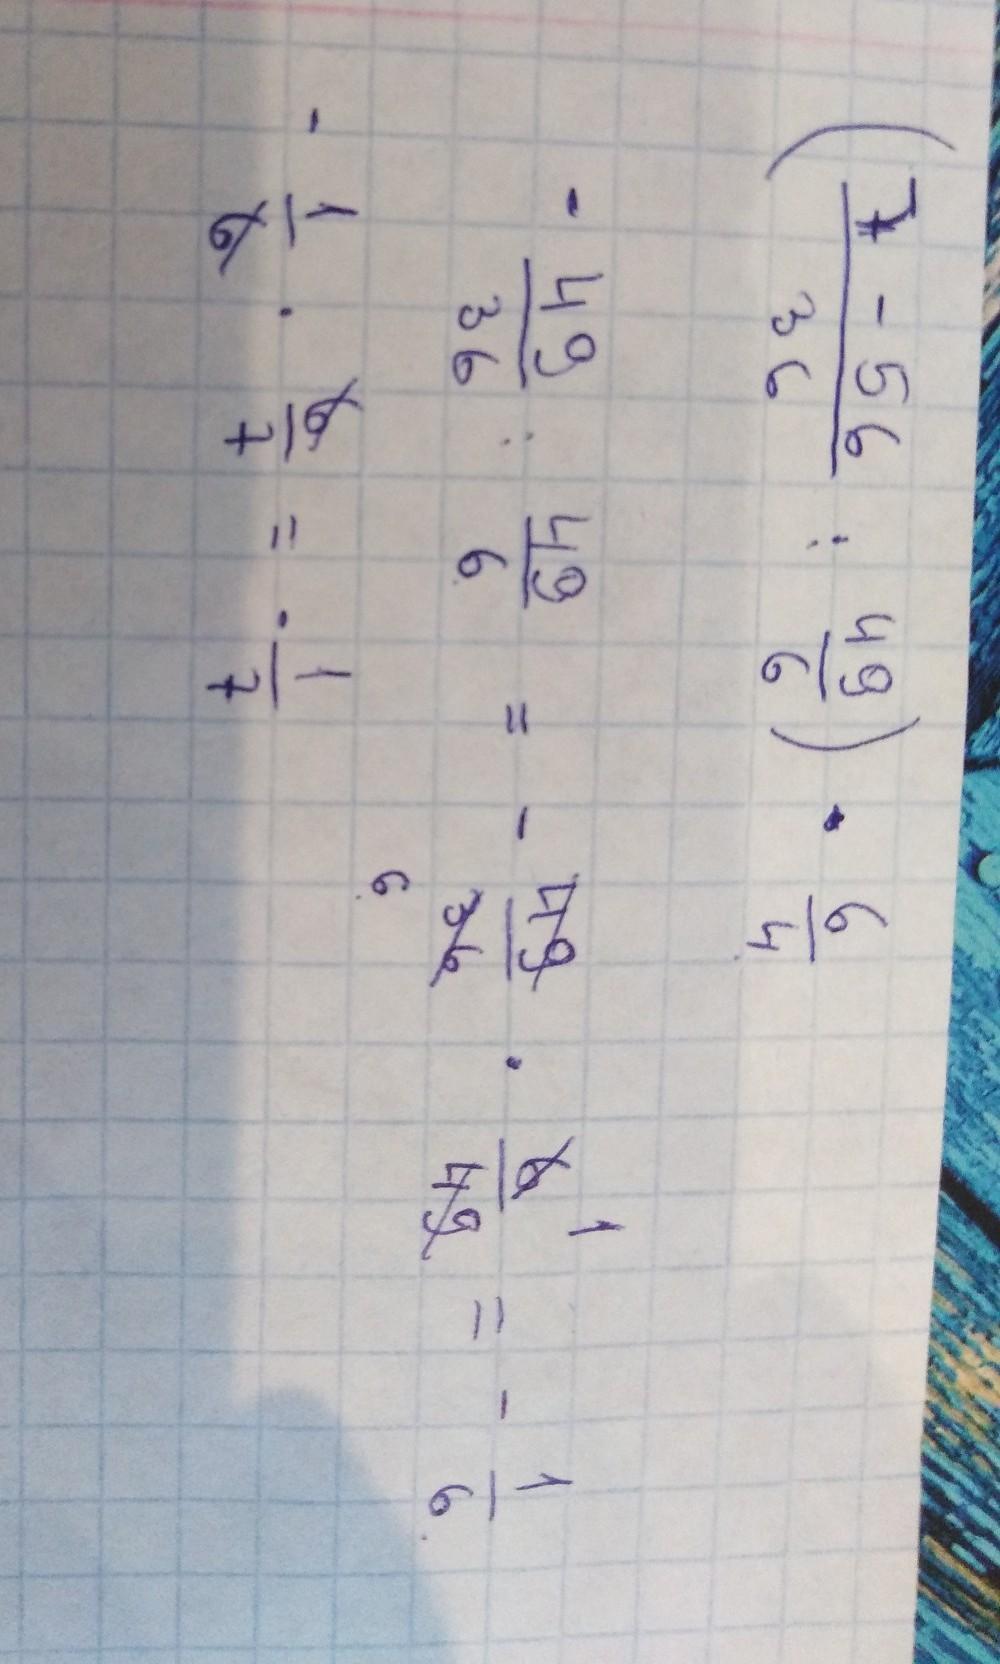 (7-56/36 : 49/6) · 6/4
- 49/36 : 49/6 = - 49/36 6 · 6/49 1 = - 1/6
- 1/6 · 6/7 = - 1/7